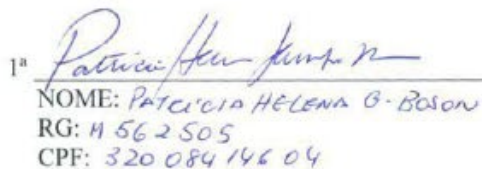 1ª Patricia
NOME: PATRICIA HELENA G. BOSON
RG: M 562505
CPF: 320 084 146 04